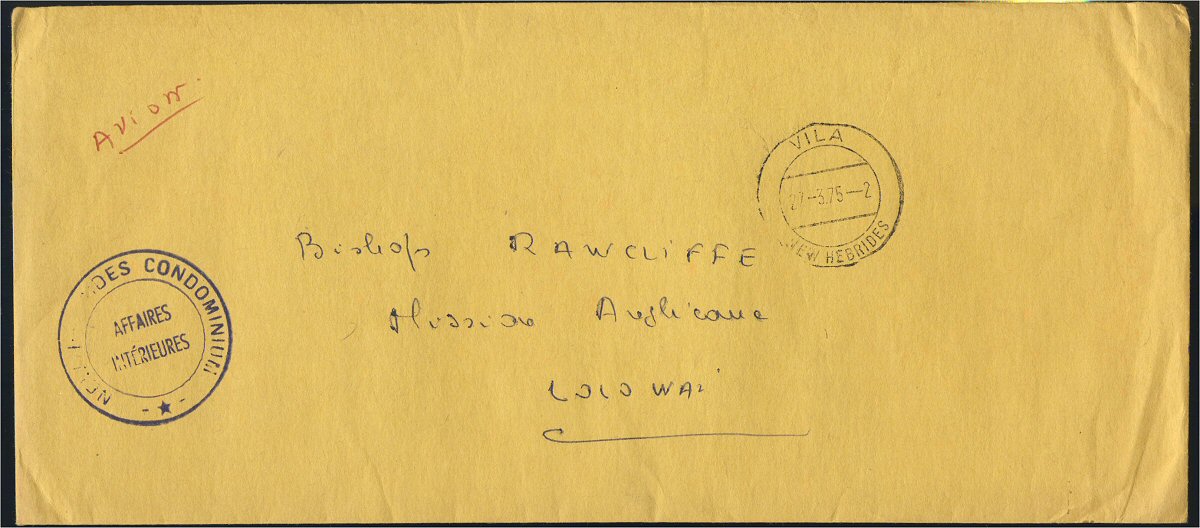 Avion.
VILA
27-3.75-2
NEW HEBRIDES
Bishop RAWCLIFFE
Mission Anglicane
LOLOWAI
CONDOMINIUM
AFFAIRES
INTÉRIEURES